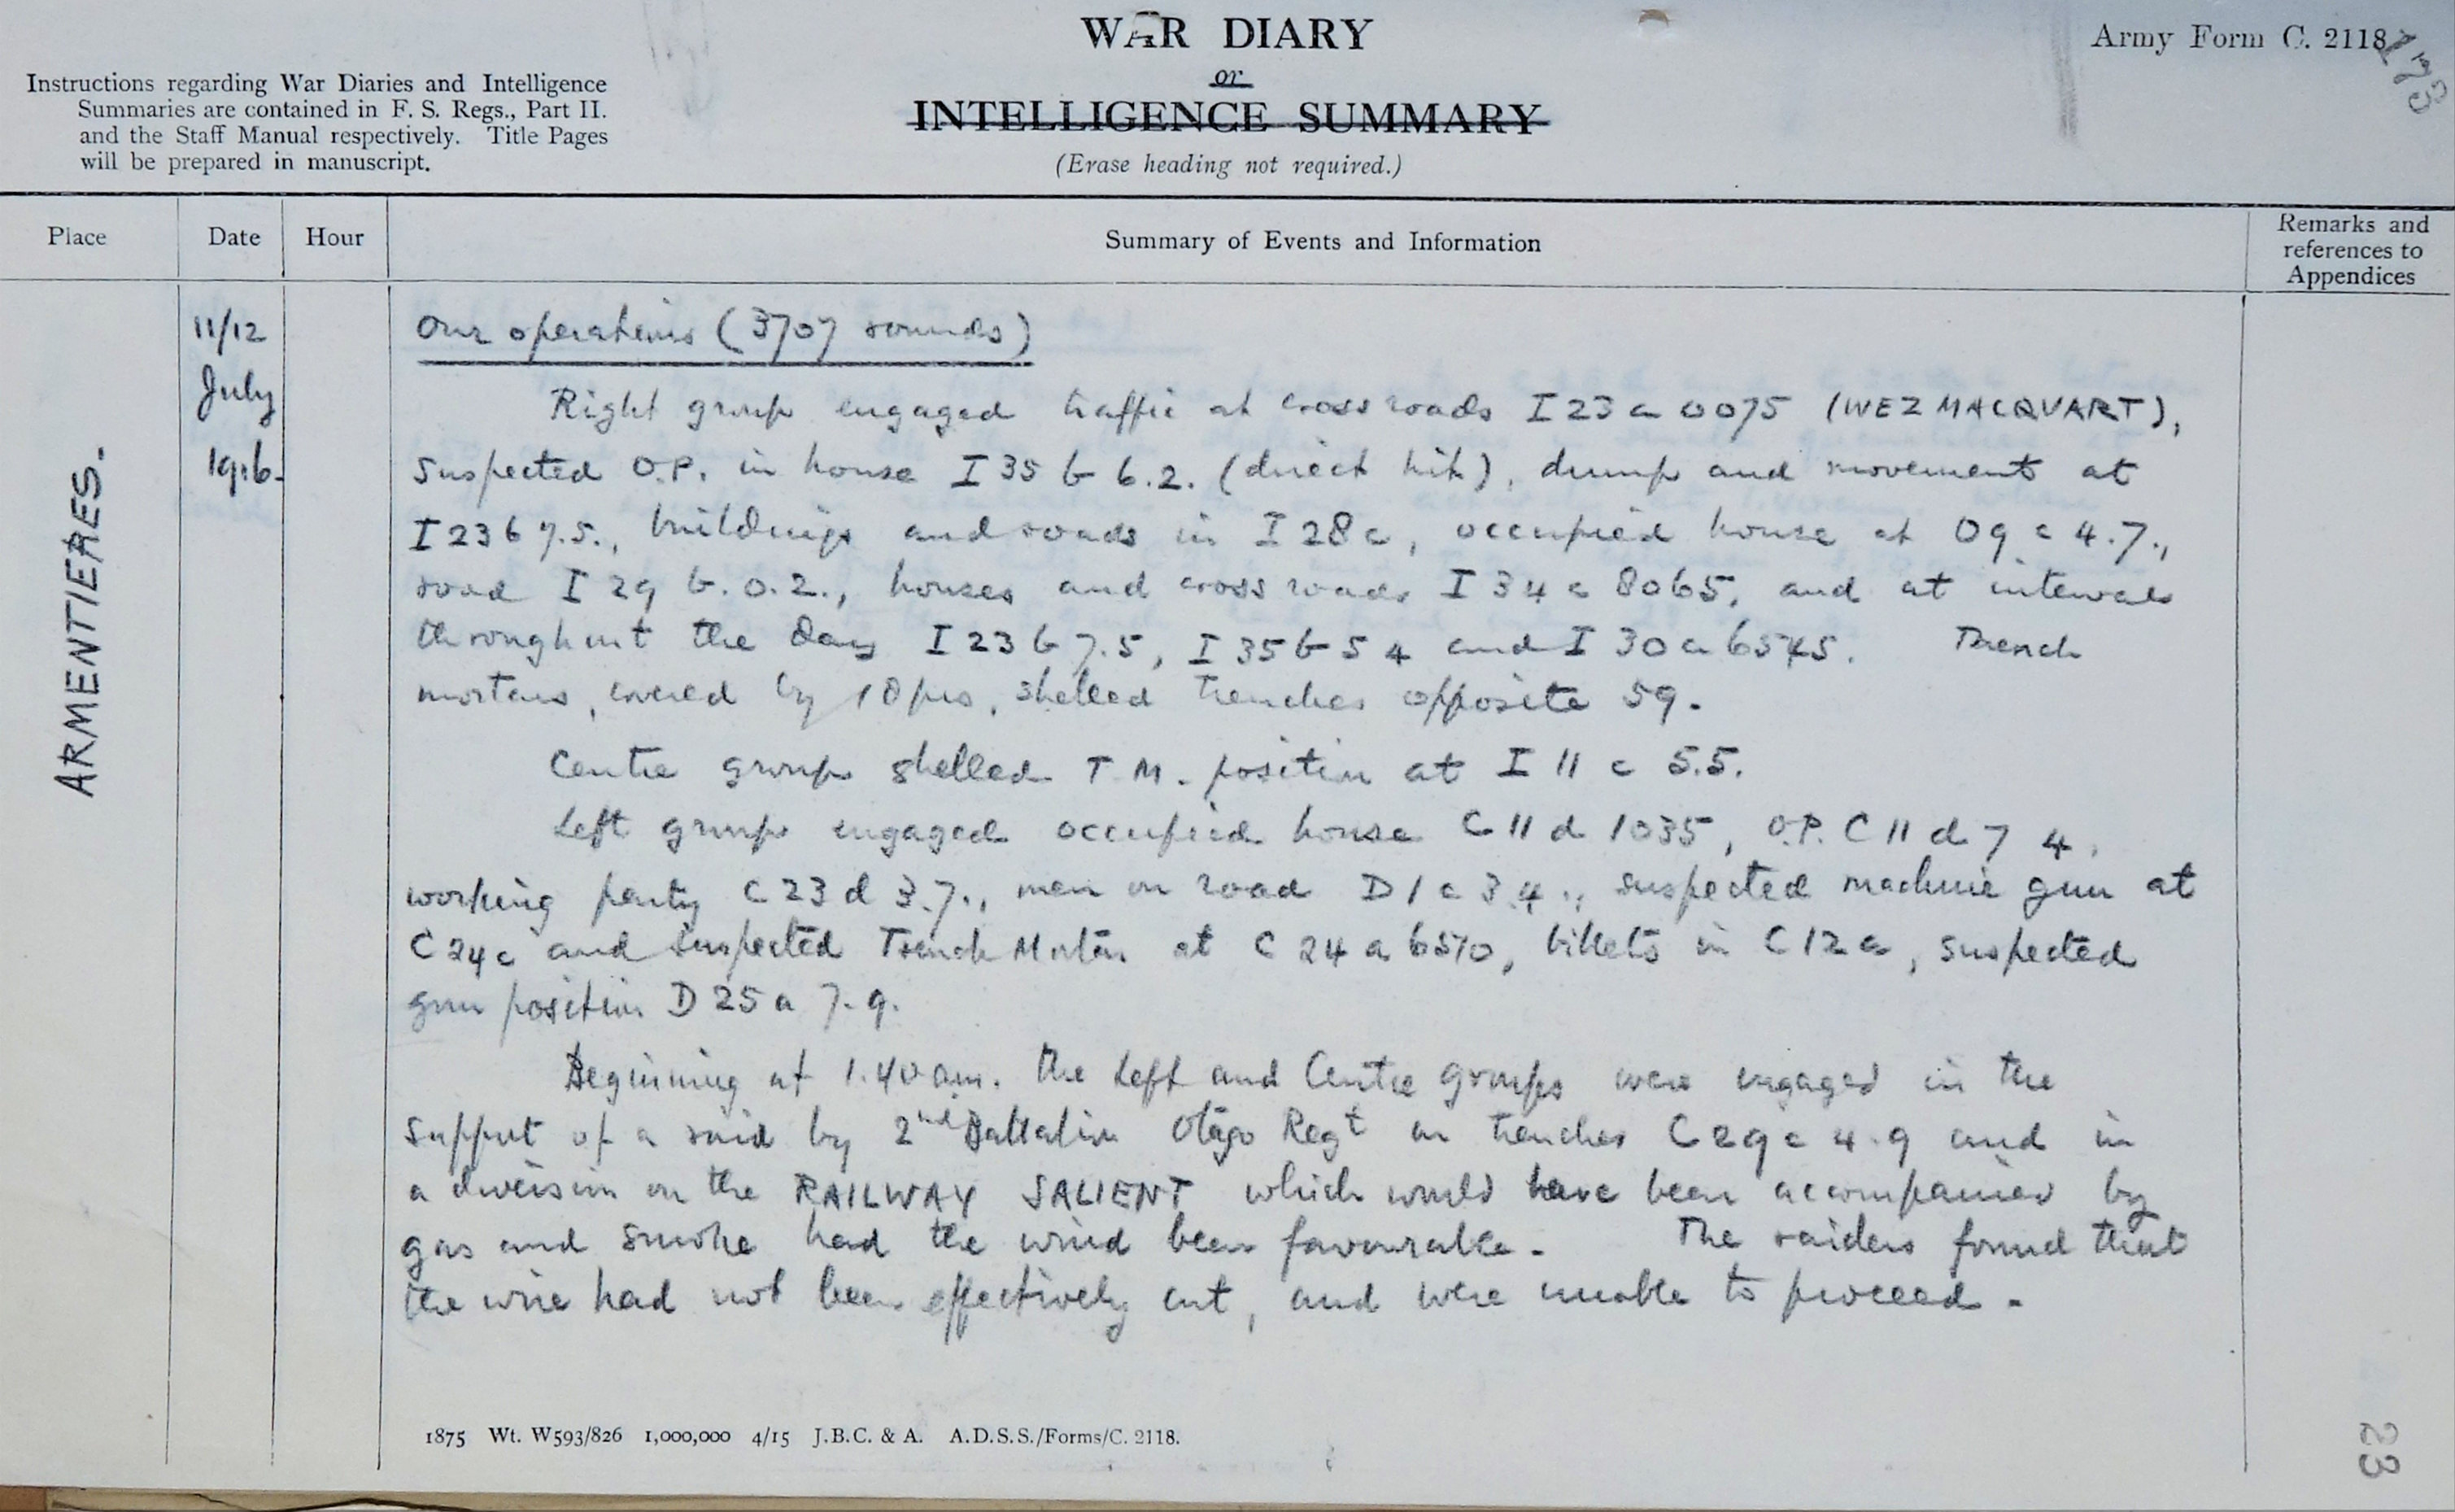 WAR DIARY
or
INTELLIGENCE SUMMARY
(Erase heading not required.)
Army Form C. 2118
Instructions regarding War Diaries and Intelligence
Summaries are contained in F. S. Regs., Part II.
and the Staff Manual respectively. Title Pages
will be prepared in manuscript.
Place Date Hour Summary of Events and Information Remarks and references to Appendices
ARMENTIERES.
11/12
July
1916.
Our operations (3707 rounds)
Right group engaged traffic at cross roads I 23 a 0075 (WEZ MACQUART),
suspected O.P. in house I 35 b 6.2. (direct hit), dump and movement at
I 23 b 7.5., buildings and roads in I 28 c, occupied house at O 9 c 4.7.,
road I 29 b. 0.2., houses and cross roads I 34 c 8065, and at intervals
throughout the day I 23 b 7.5, I 35 b 5 4 and I 30 a 6545. Trench
mortars, covered by 18 prs, shelled trenches opposite 59.
Centre group shelled T M. position at I 11 c 5.5.
Left group engaged occupied house C 11 d 1035, O.P. C 11 d 7 4,
working party C 23 d 3.7., men on road D 1 c 3.4., suspected machine gun at
C 24 c and suspected Trench Mortar at C 24 a 6510, billets in C 12 a, suspected
gun position D 25 a 7.9.
Beginning at 1.40 am. the Left and Centre groups were engaged in the
support of a raid by 2nd Battalion Otago Regt on trenches C 29 c 4.9 and in
a diversion on the RAILWAY SALIENT which would have been accompanied by
gas and smoke had the wind been favourable. The raiders found that
the wire had not been effectively cut, and were unable to proceed.
1875 Wt. W593/826 1,000,000 4/15 J.B.C. & A. A.D.S.S./Forms/C. 2118.
23